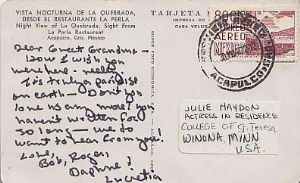 VISTA NOCTURNA DE LA QUEBRADA,
DESDE EL RESTAURANTE LA PERLA
Night View of La Quebrada, Sight From
La Perla Restaurant
Acapulco, Gro. México
Dear Great Grandma -
How I wish you
were here - really
it's truly a paradise
on earth - Don't you
love us any more? you
haven't written for
so long - we do
want to hear from you!
Love,
Bob, Roger,
Daphne &
Lucretia
TARJETA
AEREO
MEXICO
ACAPULCO
JULIE HAYDON
ACTRESS IN RESIDENCE
COLLEGE OF St. Teresa
WINONA MINN
U.S.A.